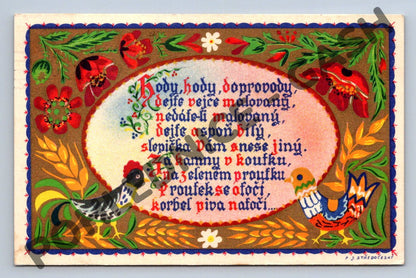 Hody, hody, doprovody,
dejte vejce malovaný,
nedáte-li malovaný,
dejte aspoň bílý,
slepička Vám snese jiný.
Za kamny v koutku,
na zeleném proutku
Proutek se otočí,
korbel piva natočí....